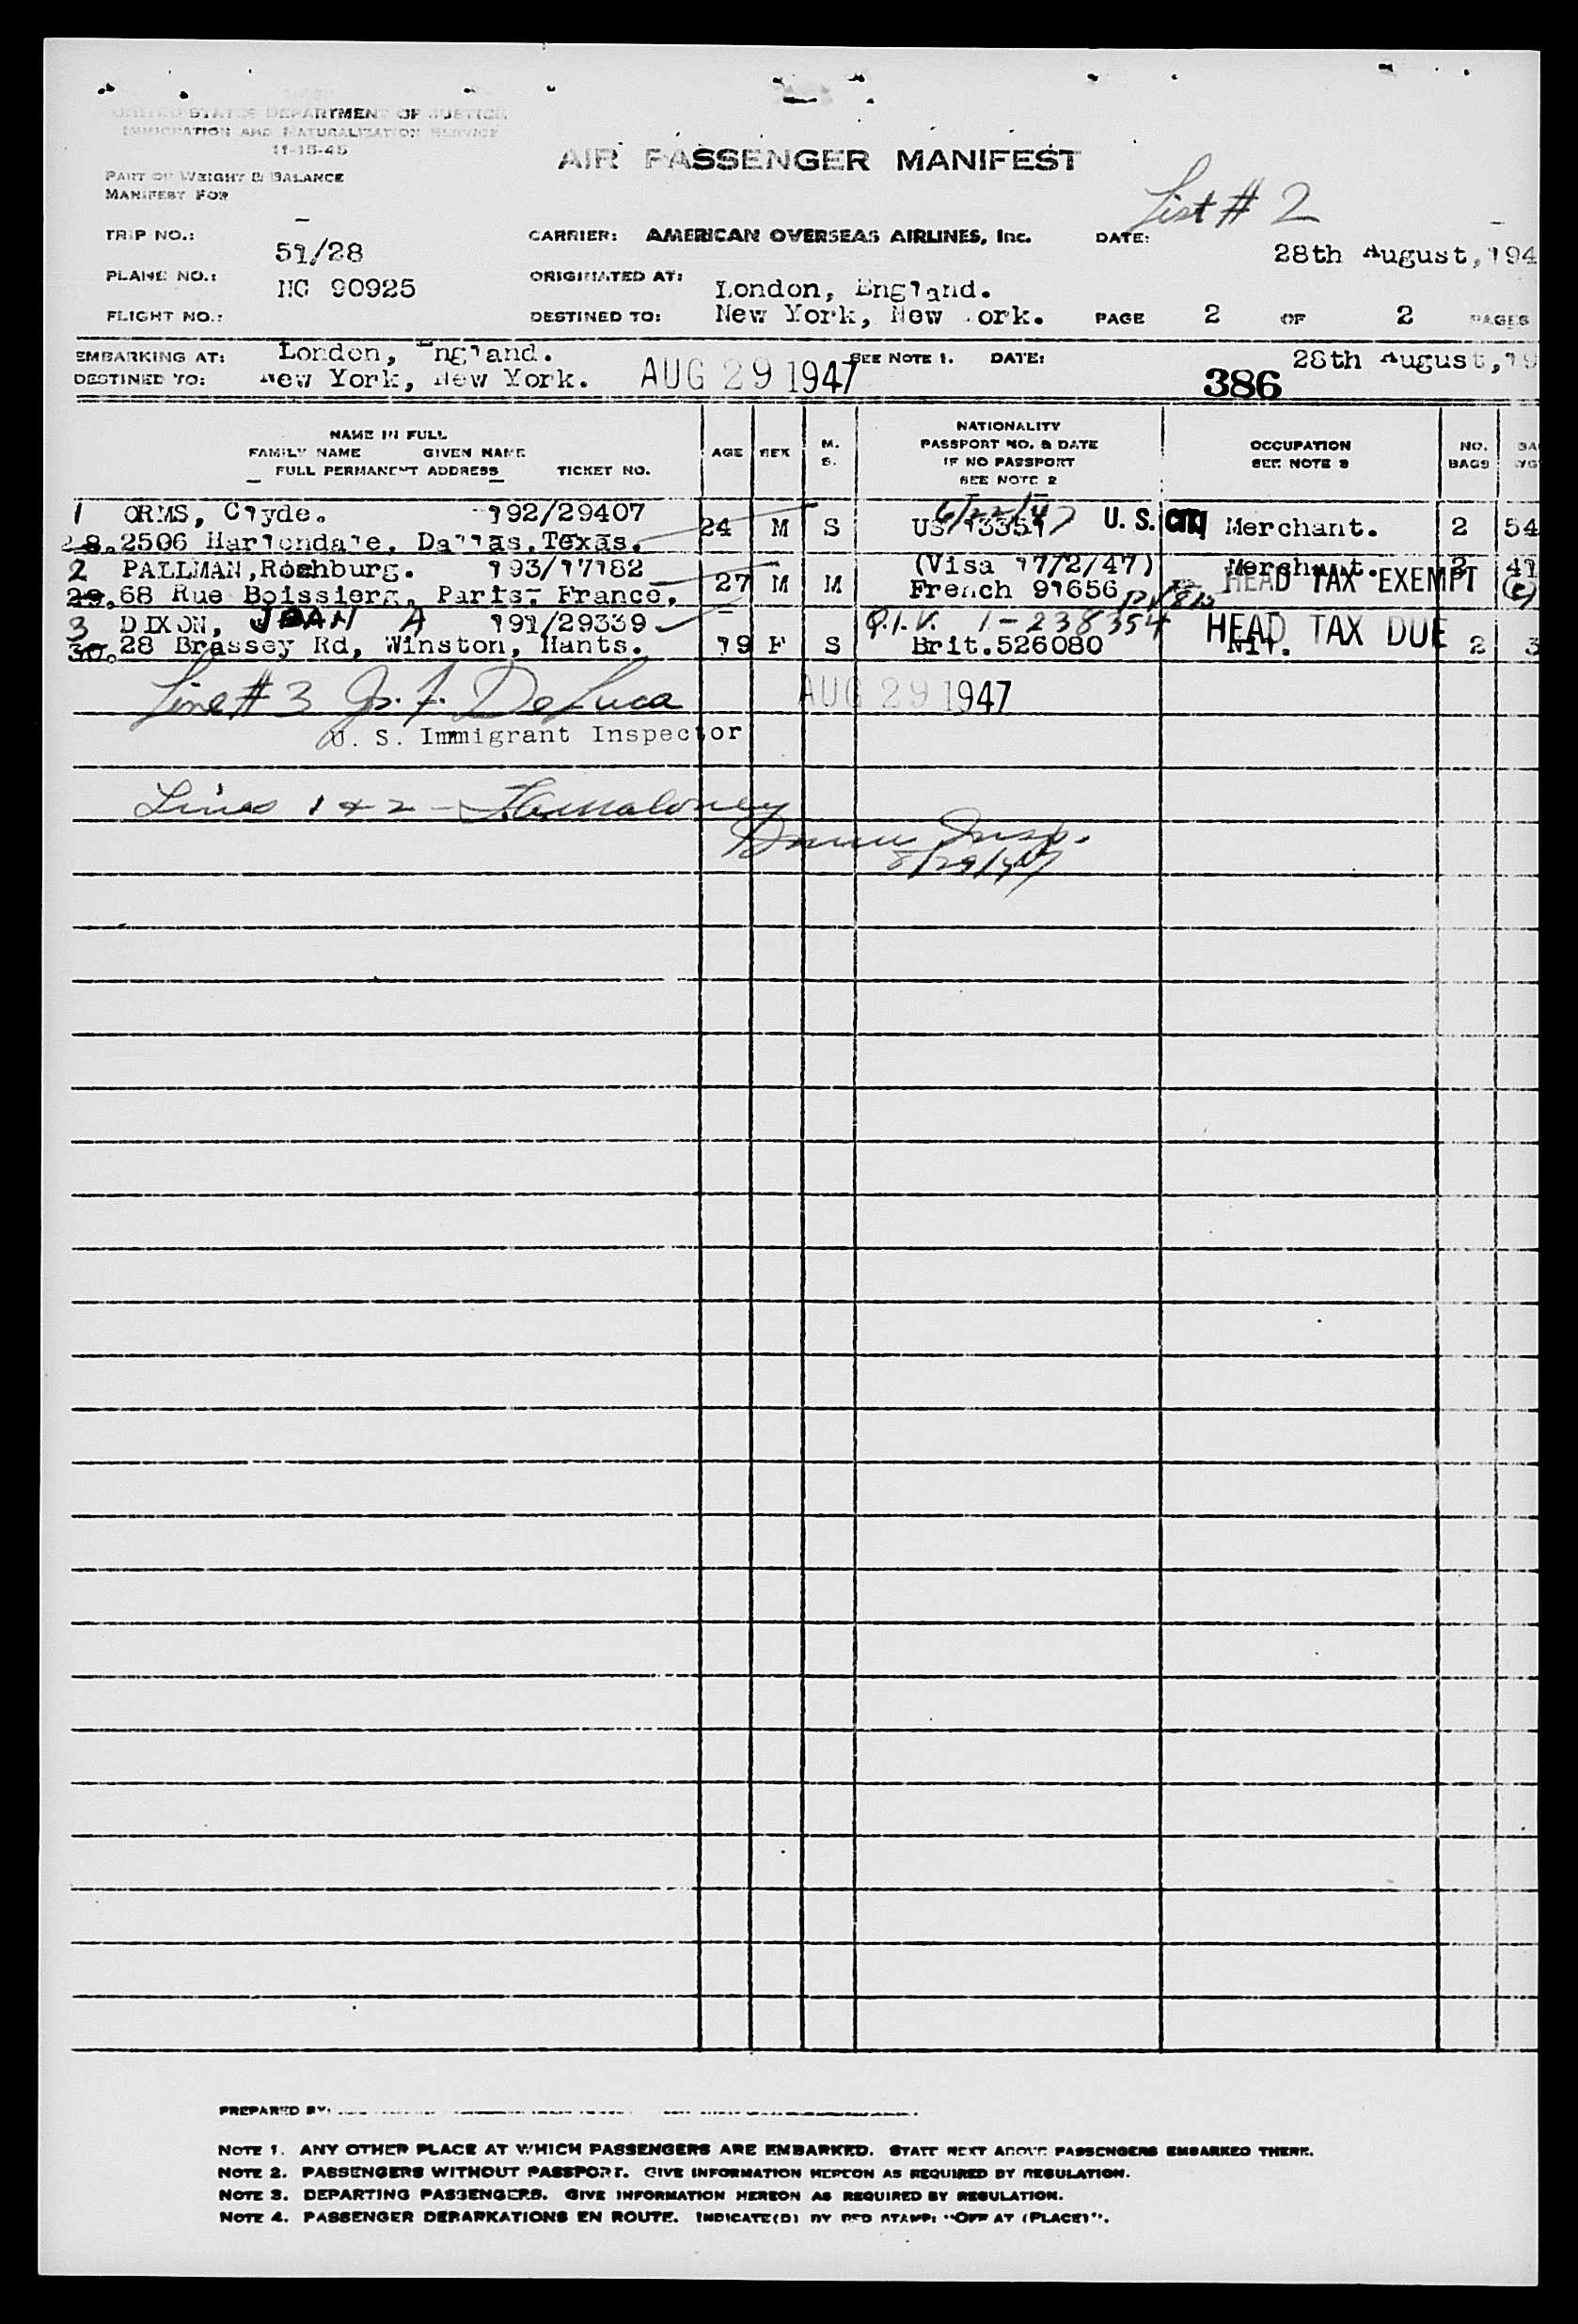 UNITED STATES DEPARTMENT OF JUSTICE
IMMIGRATION AND NATURALIZATION SERVICE
11-15-45
AIR PASSENGER MANIFEST
PART OF WEIGHT & BALANCE
MANIFEST FOR
List # 2
TRIP NO.: 51/28 CARRIER: AMERICAN OVERSEAS AIRLINES, Inc. DATE: 28th August, 194
PLANE NO.: NC 90925 ORIGINATED AT: London, England.
FLIGHT NO.: DESTINED TO: New York, New York. PAGE 2 OF 2 PAGES
EMBARKING AT: London, England. SEE NOTE 1. DATE: 28th August, 19
DESTINED TO: New York, New York. AUG 29 1947 386
NAME IN FULL
FAMILY NAME GIVEN NAME
FULL PERMANENT ADDRESS TICKET NO.
AGE SEX M. S.
NATIONALITY
PASSPORT NO. & DATE
IF NO PASSPORT
SEE NOTE 2
OCCUPATION
SEE NOTE 3
NO. BAGS
1 ORMS, Clyde. 192/29407 6/22/47
28. 2506 Harlendale, Dallas, Texas. 24 M S US 13351 U. S. CITZ Merchant. 2 54
2 PALLMAN, Roehburg. 193/17182 (Visa 17/2/47) Merchant. 2 41
29. 68 Rue Boissiera, Paris, France. 27 M M French 91656 HEAD TAX EXEMPT
3 DIXON, JOAN A 191/29339 Q.I.V. 1-238354 HEAD TAX DUE
30. 28 Brassey Rd, Winston, Hants. 19 F S Brit. 526080 Nil. 2 3
Line # 3 Jr. F. DeLuca AUG 29 1947
U. S. Immigrant Inspector
Lines 1 & 2 - Maloney
Insp.
8/29/47
PREPARED BY:
NOTE 1. ANY OTHER PLACE AT WHICH PASSENGERS ARE EMBARKED. STATE NEXT ABOVE PASSENGERS EMBARKED THERE.
NOTE 2. PASSENGERS WITHOUT PASSPORT. GIVE INFORMATION HEREON AS REQUIRED BY REGULATION.
NOTE 3. DEPARTING PASSENGERS. GIVE INFORMATION HEREON AS REQUIRED BY REGULATION.
NOTE 4. PASSENGER DEBARKATIONS EN ROUTE. INDICATE(D) BY RED STAMP: "OFF AT (PLACE)".